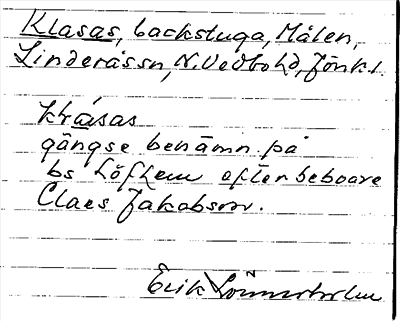 Klasas, backstuga, Målen,
Linderåssn, N. Vedbohd, Jönk. l.
klasas
gängse benämn. på
bs Löfhem efter beboare
Claes Jakobsson.
Erik Lönnerholm